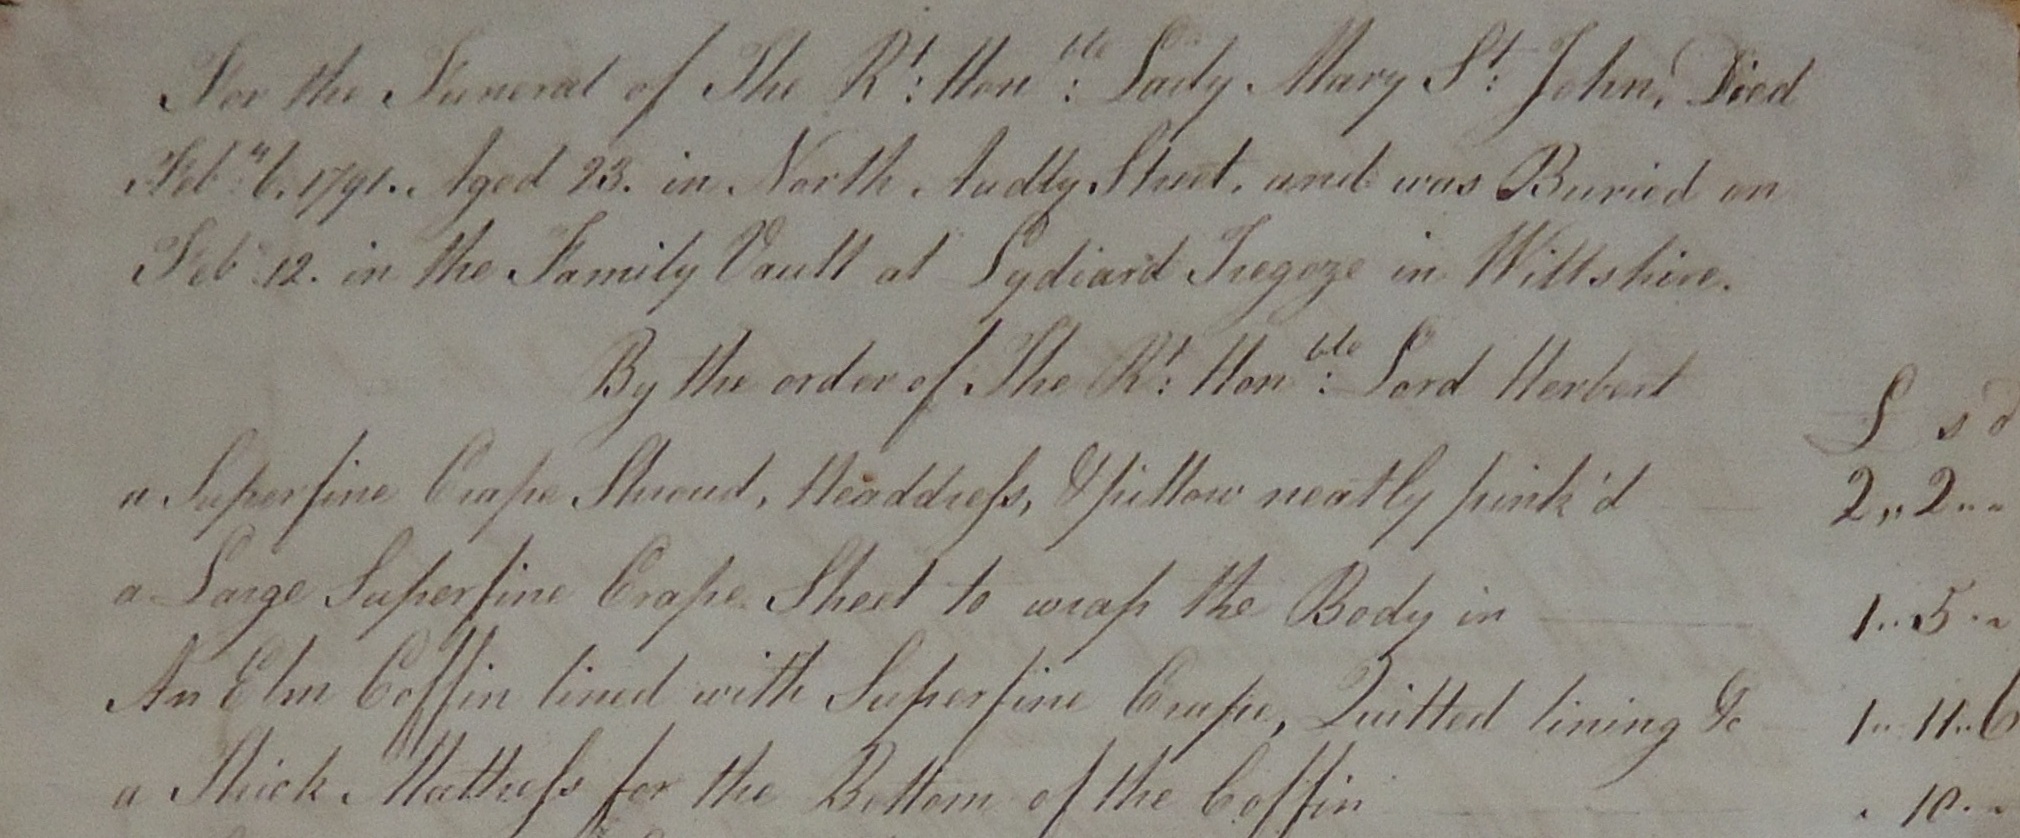 For the Funeral of The Rt: Honble: Lady Mary St: John, Died
Feby 6. 1791. Aged 23. in North Audly Street, and was Buried on
Feby 12. in the Family Vault at Lydiard Tregoze in Wiltshire.
By the order of The Rt: Honble: Lord Herbert
£ s d
a Superfine Crape Shroud, Headdress, & pillow neatly pink'd 2 " 2 " "
a Large Superfine Crape Sheet to wrap the Body in 1 " 5 " "
An Elm Coffin lined with Superfine Crape, Quilted lining &c 1 " 11 " 6
a Thick Mattress for the Bottom of the Coffin " 10 " "